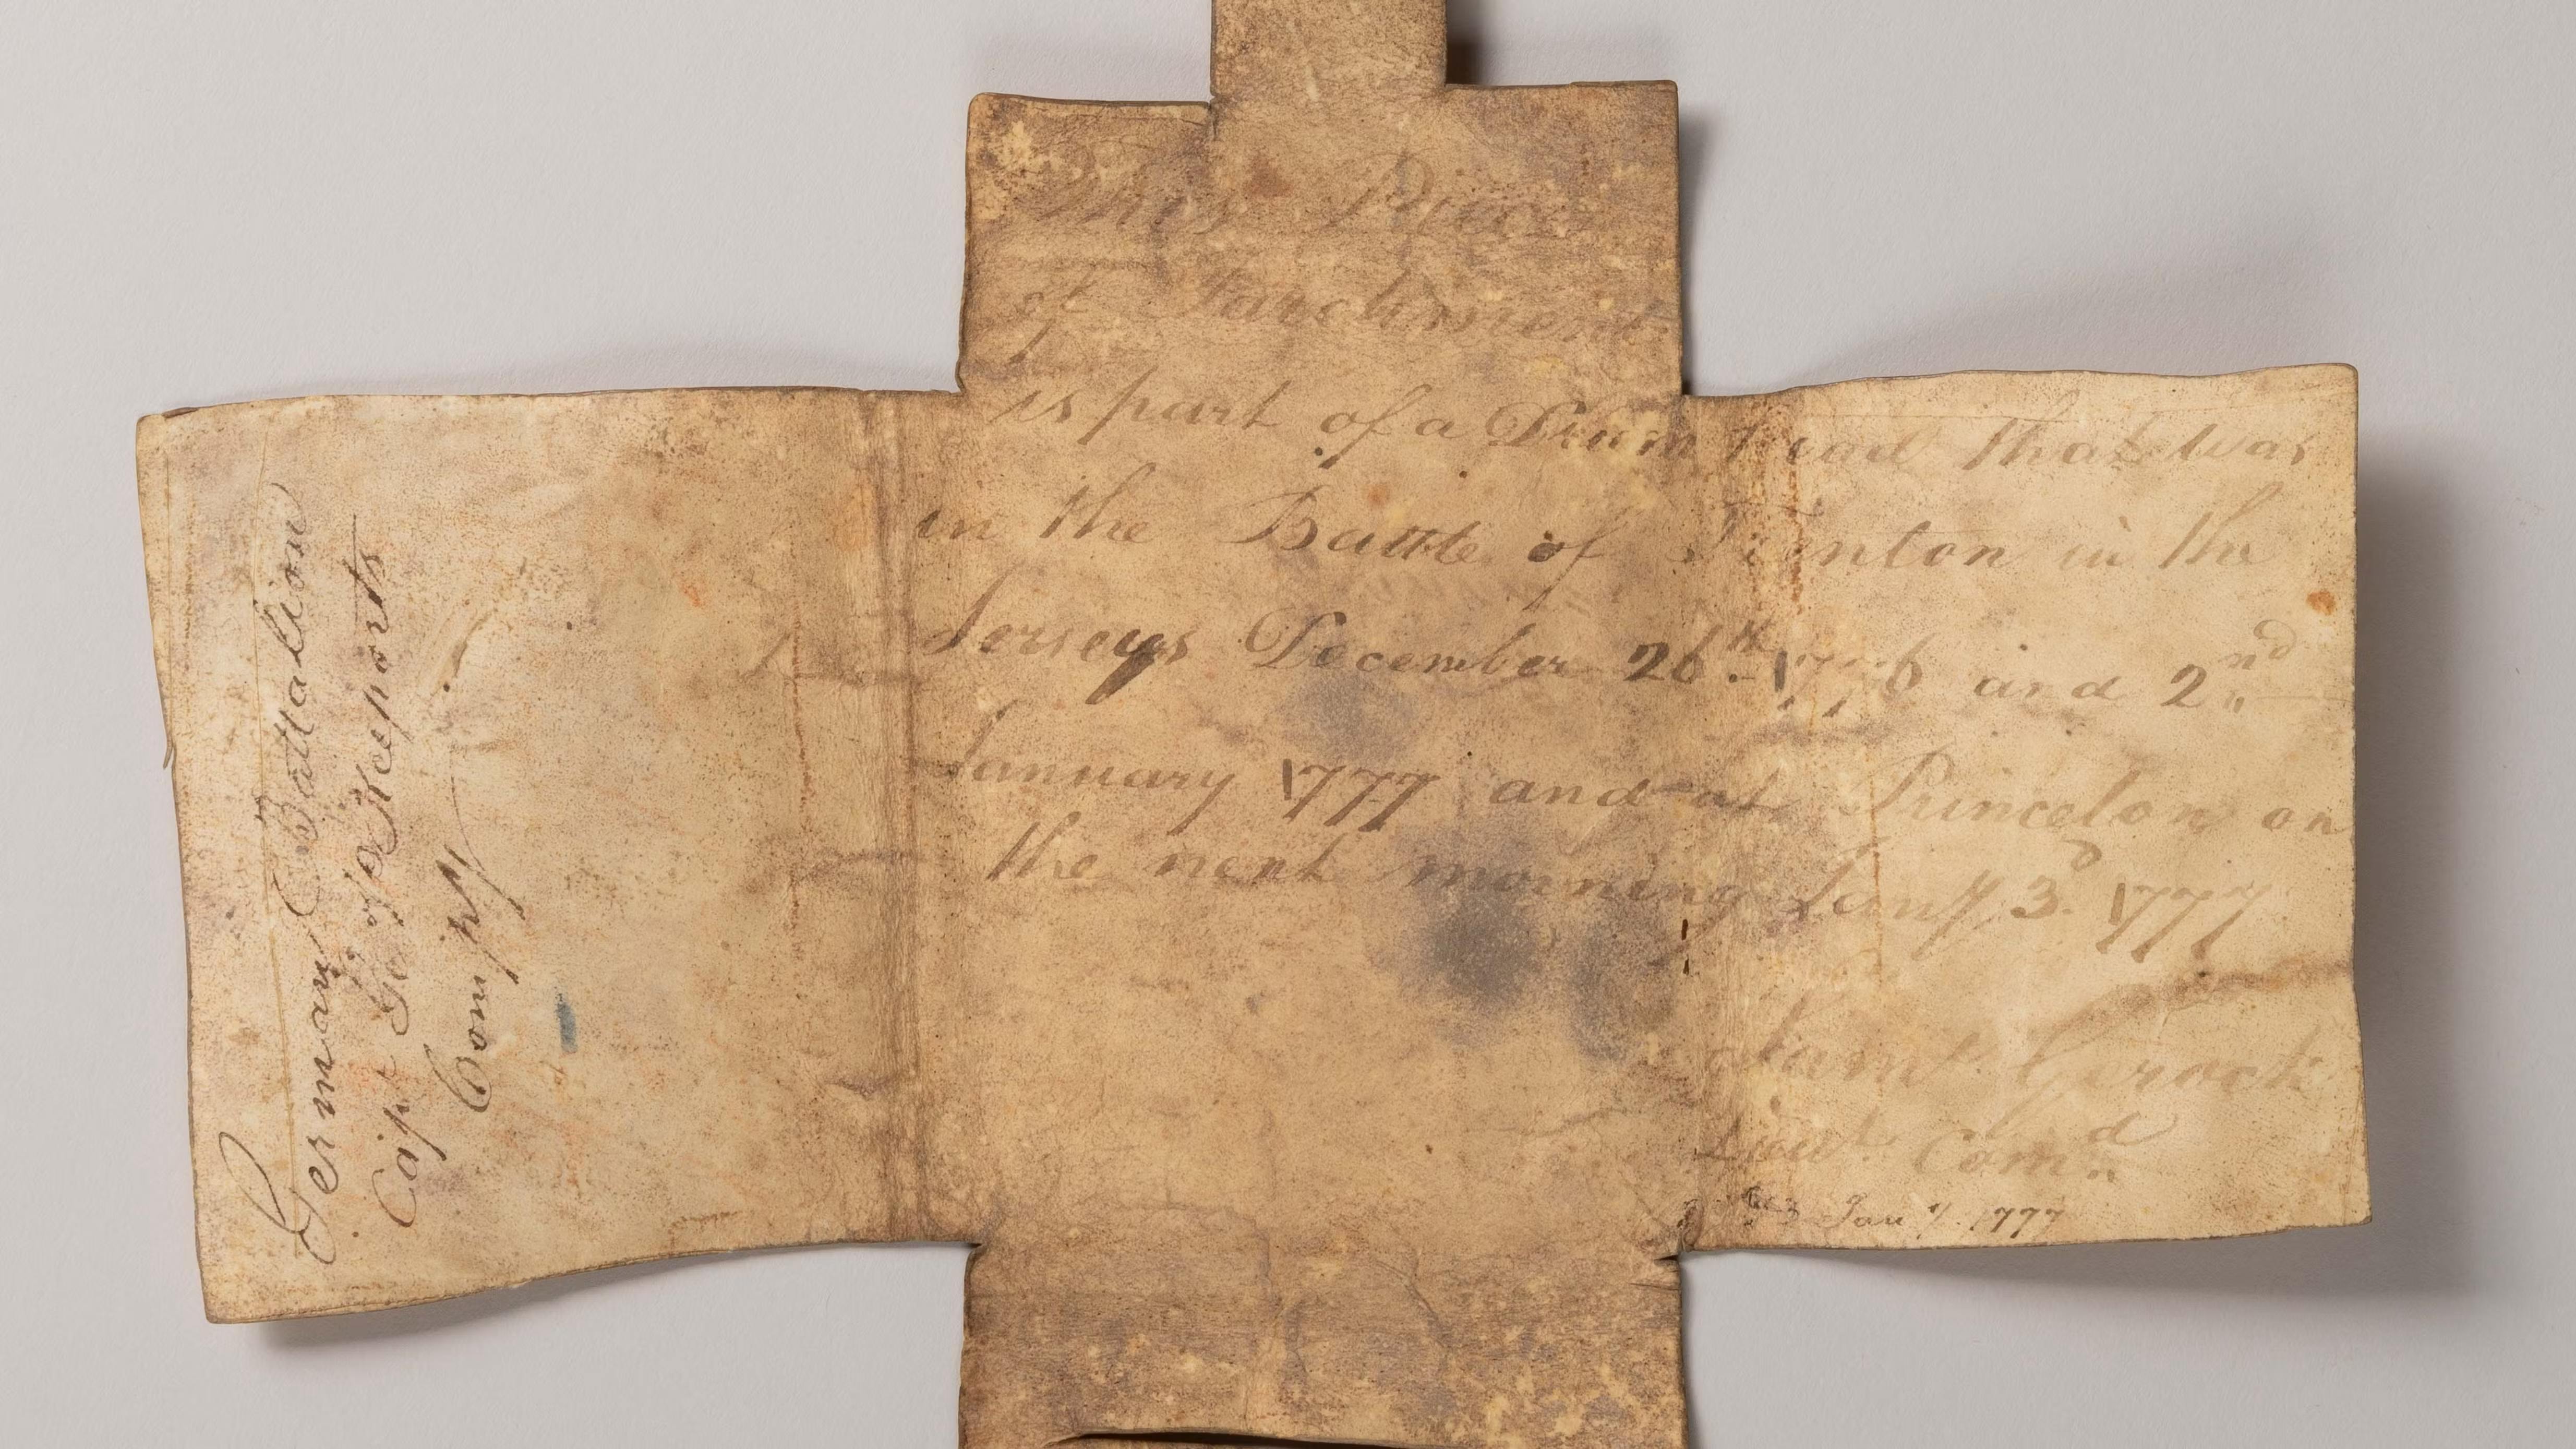 This Piece
of Parchment
is part of a Drum Head that was
in the Battle of Trenton in the
Jerseys December 26th. 1776 and 2nd
January 1777 and at Princeton on
the next morning Jany. 3d. 1777
Saml. Gerock
Lieut. Comd.
Jany. 1777
German Battalion
Capt Geo. Keeports
Compy